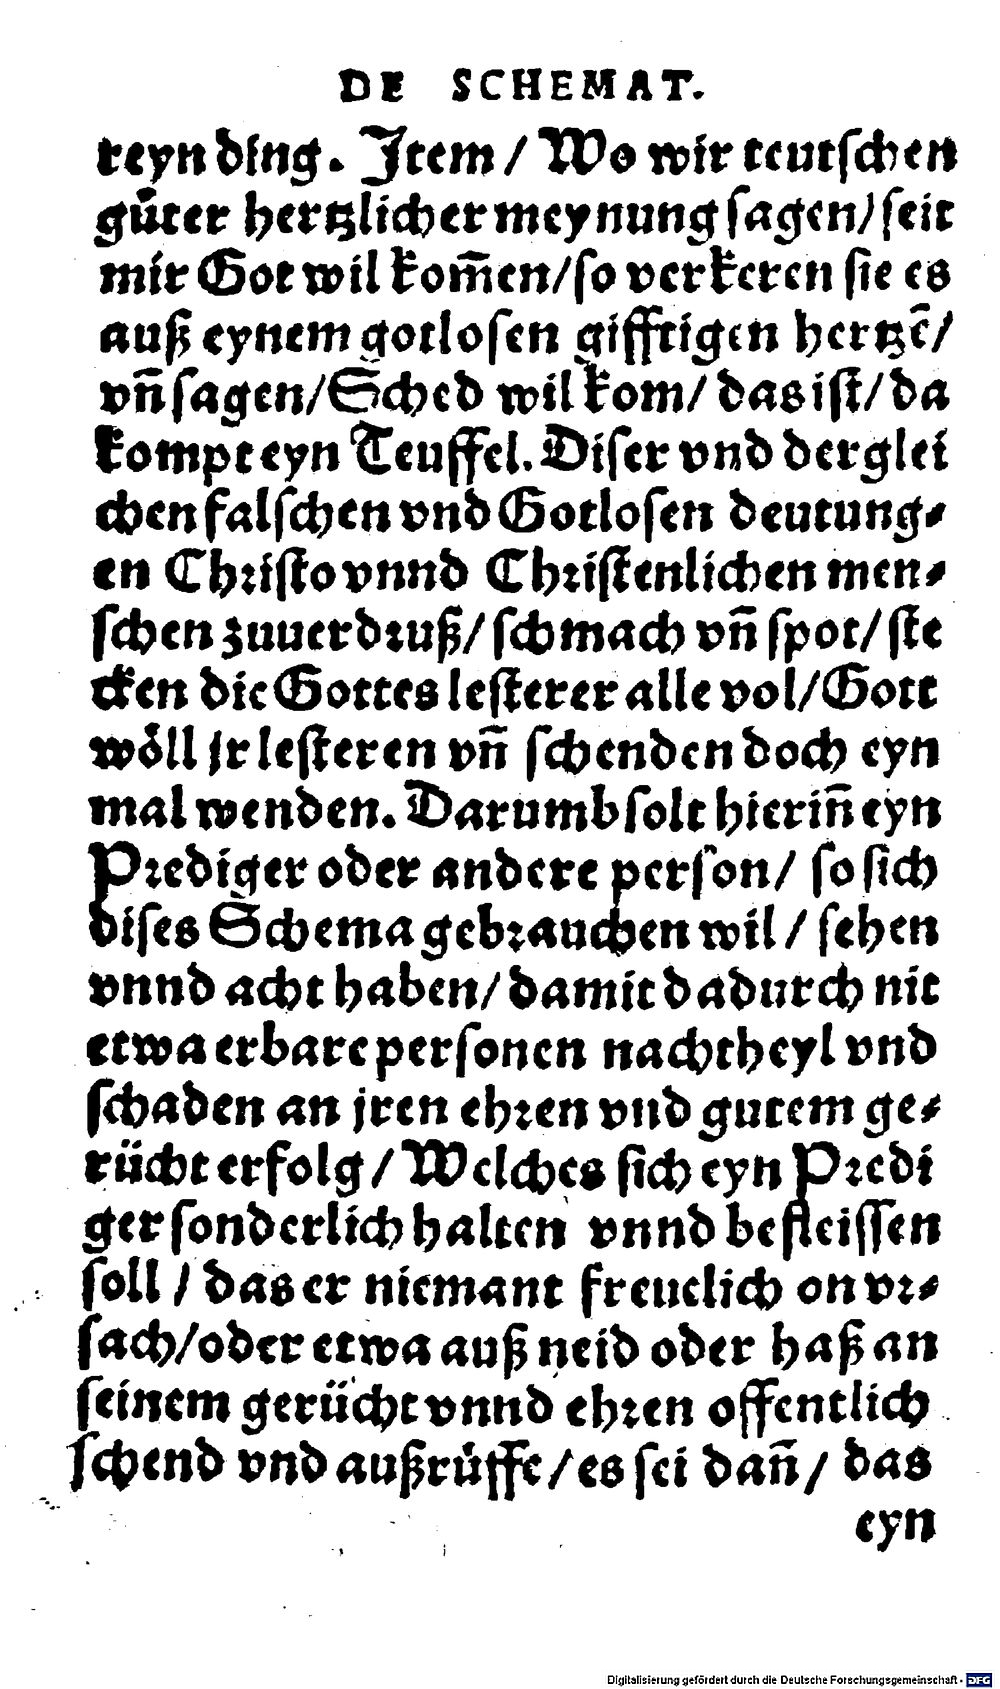 DE SCHEMAT.
reyn ding. Item / Wo wir teutschen
gůter hertzlicher meynung sagen / seit
mir Got wil kom̄en / so verkeren sie es
auß eynem gotlosen gifftigen hertzē /
vn̄ sagen / Sched wil kom / das ist / da
kompt eyn Teuffel. Diser vnd derglei
chen falschen vnd Gotlosen deutung⸗
en Christo vnnd Christenlichen men⸗
schen zuuerdruß / schmach vn̄ spot / ste
cken die Gottes lesterer alle vol / Gott
wöll jr lesteren vn̄ schenden doch eyn
mal wenden. Darumb solt hierin̄ eyn
Prediger oder andere person / so sich
dises Schema gebrauchen wil / sehen
vnnd acht haben / damit dadurch nit
etwa erbare personen nachtheyl vnd
schaden an jren ehren vnd gutem ge⸗
rücht erfolg / Welches sich eyn Predi
ger sonderlich halten vnnd befleissen
soll / das er niemant freuelich on vr⸗
sach / oder etwa auß neid oder haß an
seinem gerücht vnnd ehren offentlich
schend vnd außrůffe / es sei dan̄ / das
eyn
Digitalisierung gefördert durch die Deutsche Forschungsgemeinschaft - DFG